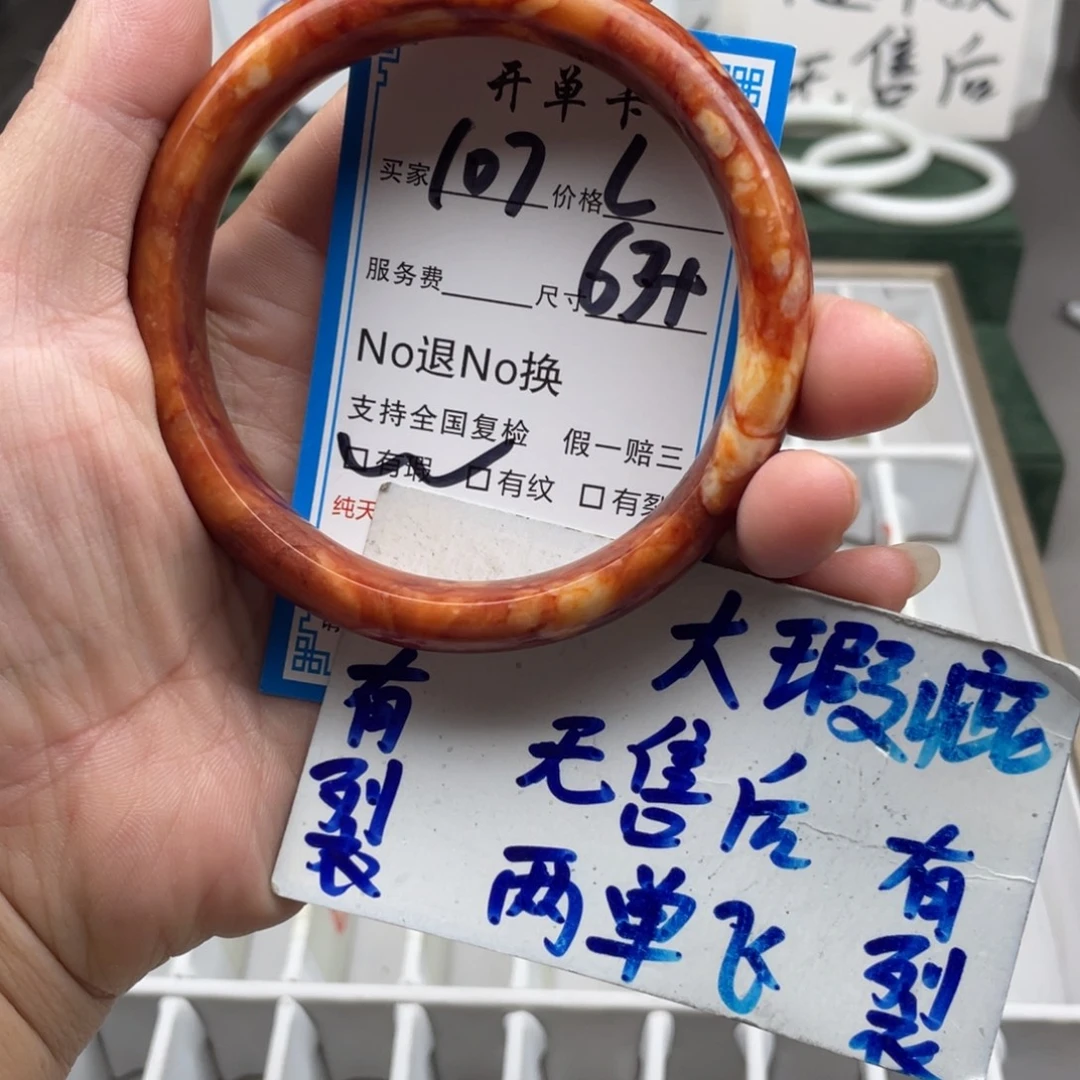 无售后
开单卡
买家107 价格L
服务费 尺寸63+
No退No换
支持全国复检 假一赔三
□有瑕 □有纹 □有裂
纯天
大瑕疵
无售后
两单飞
有裂
有裂